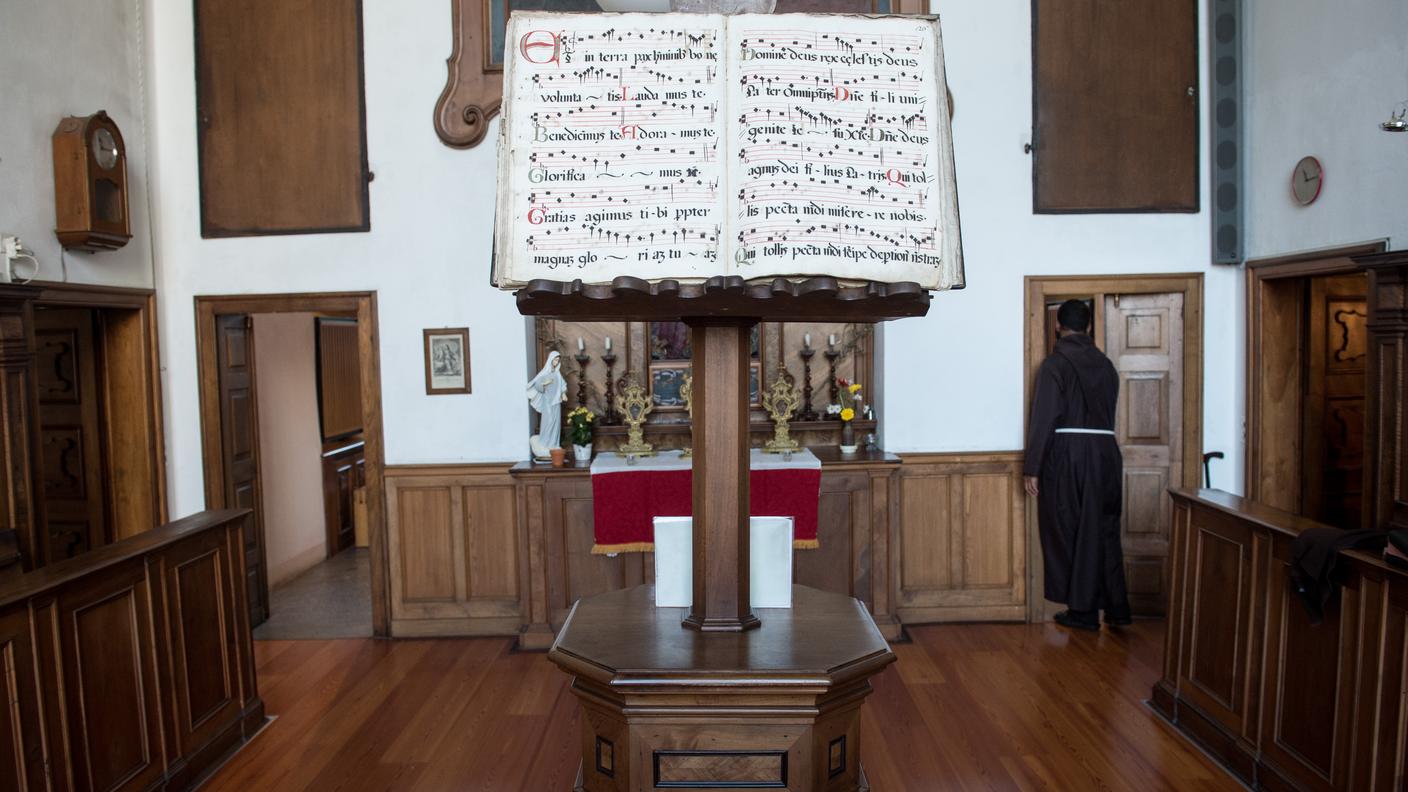 Et in terra pax hominib bo ne
volunta ~ tis Lauda mus te.
Benedicimus te Adora - mus te.
Glorifica ~ ~ mus te
Gratias agimus ti-bi ppter
magnaz glo ~ ri az tu ~ az
120
Domine deus rex celestis deus
Pa ter Dñe fi-li uni
genite Ie ~ ~ Dñe deus
agnus dei fi-lius Pa-tris Qui tol-
lis pecta mdi misere-re nobis.
Qui tollis pecta mdi